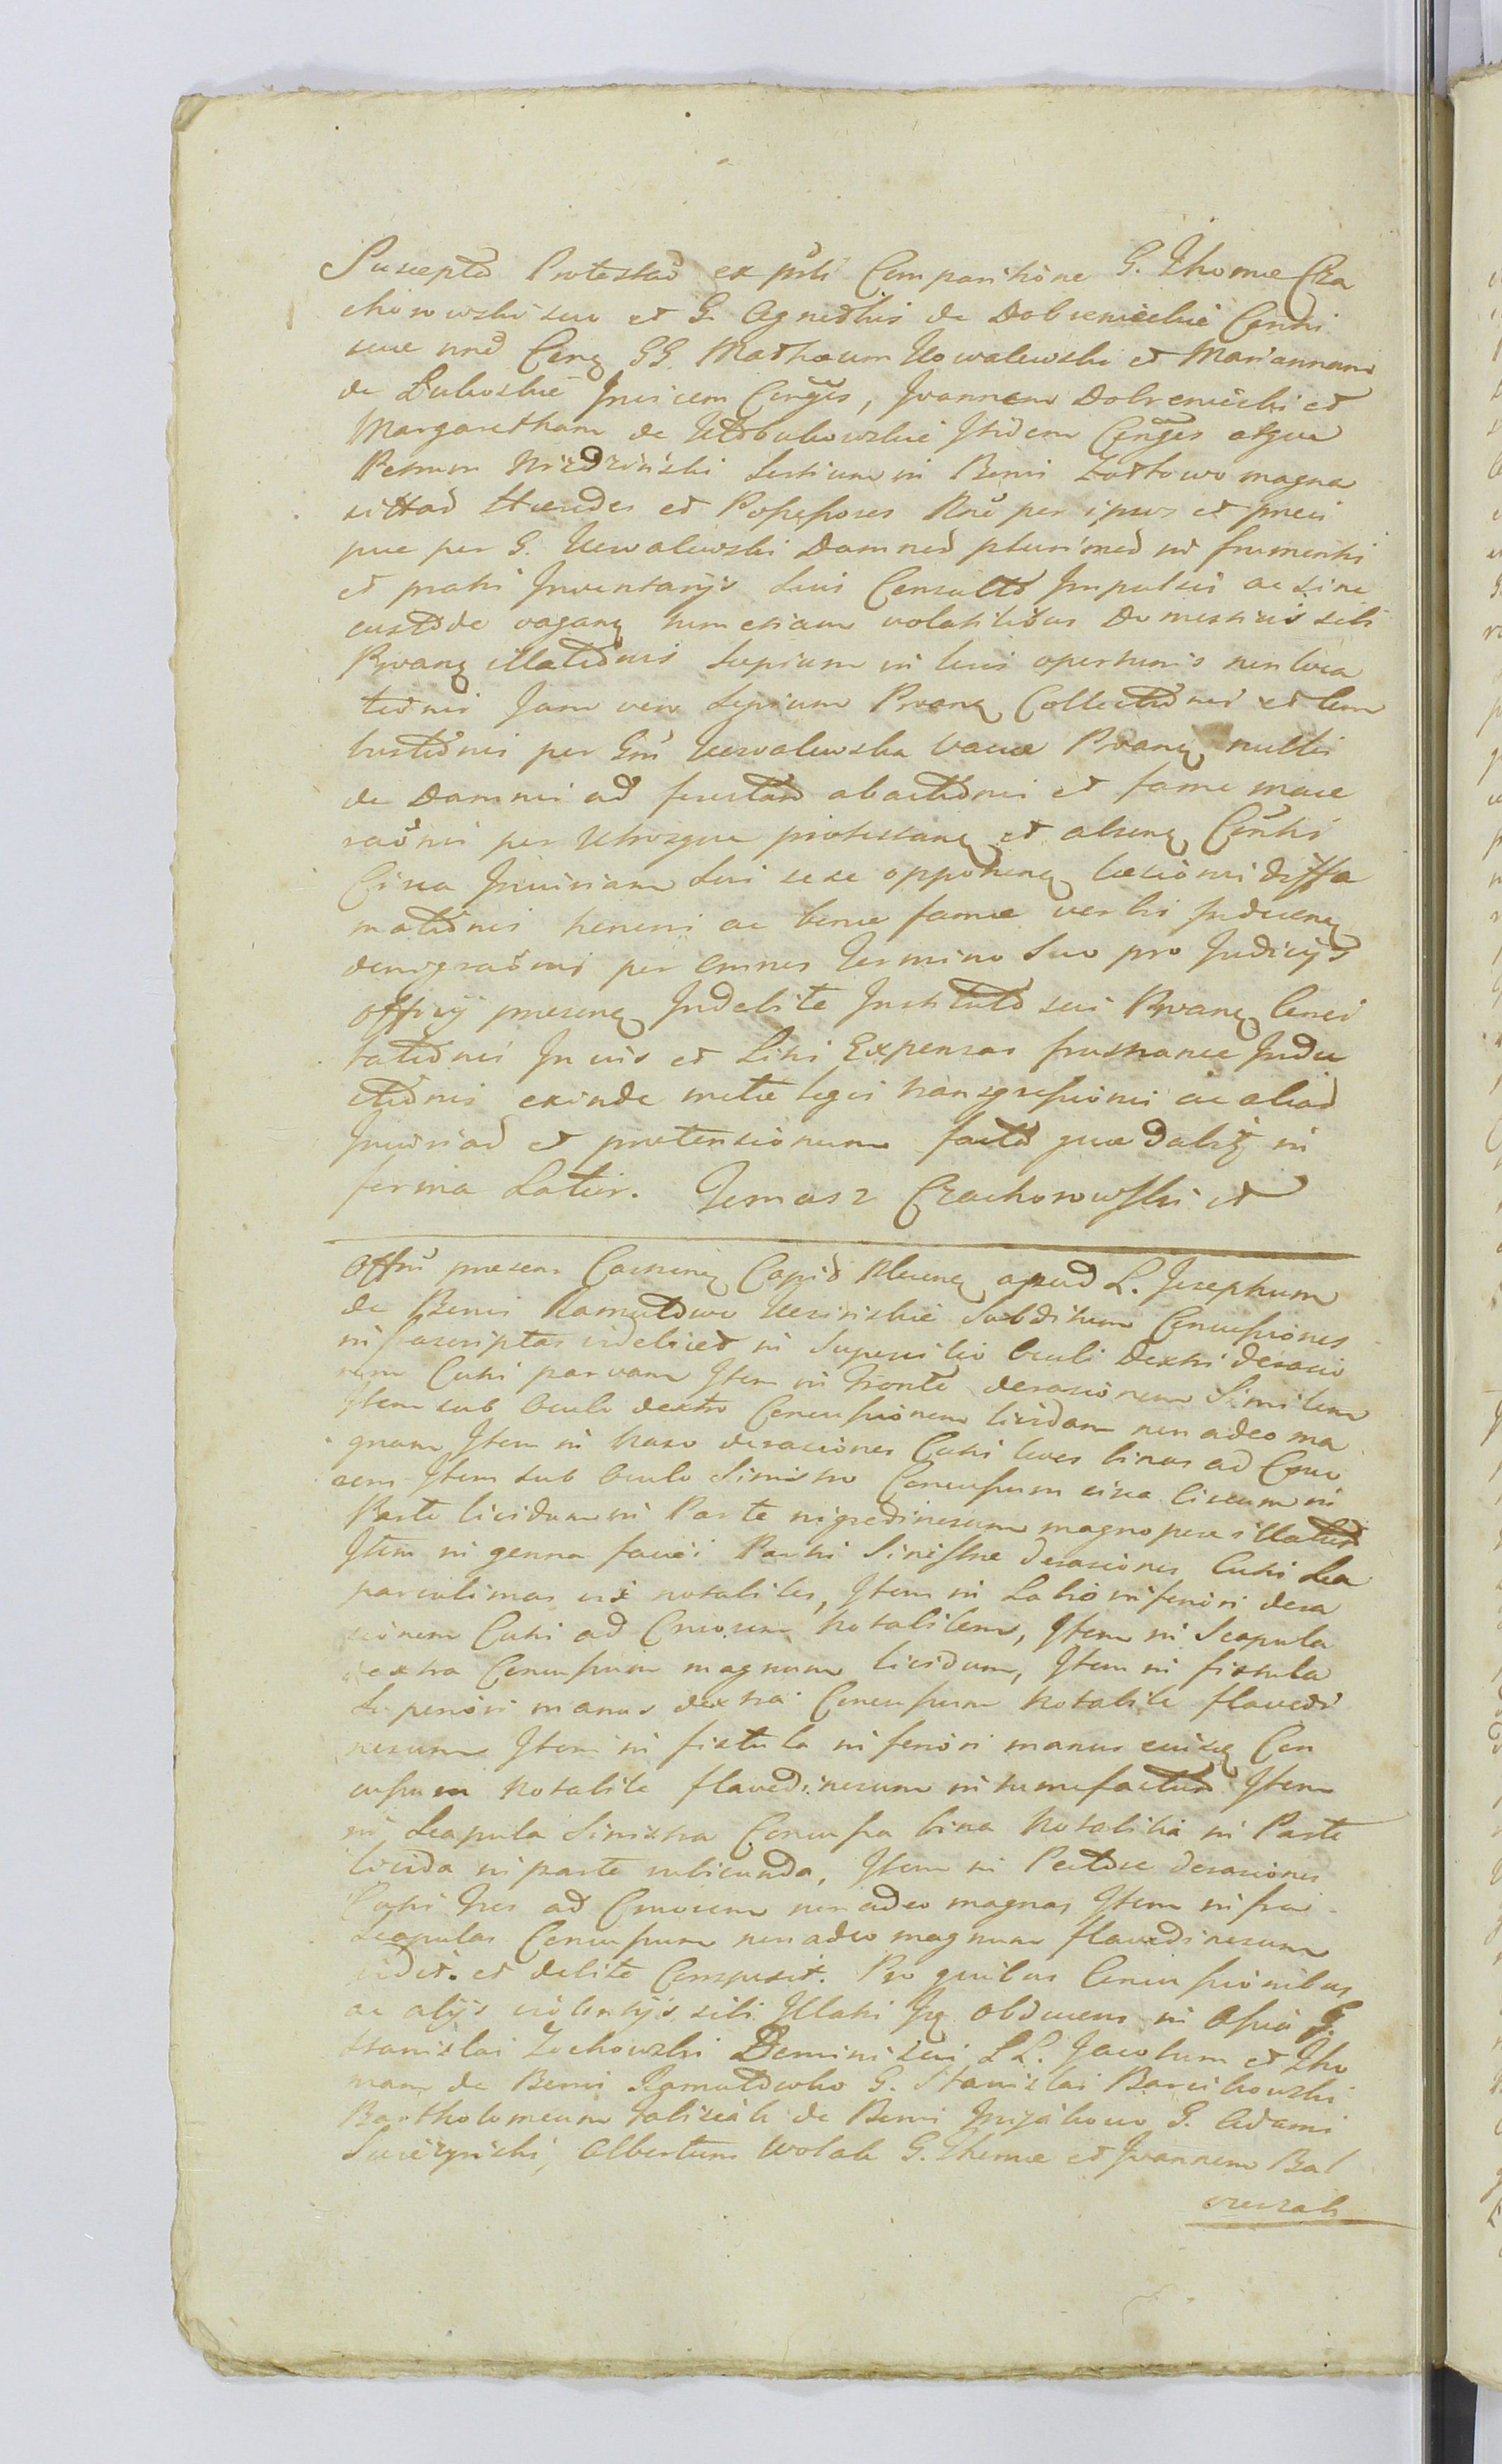 Suscepto Protestaõ ex pñti Comparitione G. Thomæ Cza
chorowski suo et G. Agnethis de Dobrzenieckie Conthi
suæ nñe Conq GG. Mathæum Kowalewski et Mariannam
de Lukoskie Invicem Conges, Joannem Dobrzeniecki et
Margaretham de Kłobukowskie Itidem Conges atque
Petrum Nizdzinski Sertium in Bonis Zottowo magna
sittas Hæredes et Possessores Rñe per ipsos et præci
pue per G. Kowalewski Damnos plurimos in frumentis
et pratis Inventarys Suis Consulto Impulsis ac sine
custode vaganq tum etiam volatilibus Domesticis sibi
Pvanq illationis Sepium in suis aperturis non loca
tionis Jam vero Sepium Pvanq Collectionis et Com
bustionis per Gm Kowalewska vacuæ Pvanq nullis
de Damnis ad acta abactionis et fame mace
raõnis per Utrosque protestanq et absenq Conthi
Circa Iniuriam Sui sese opponenq læsionis diffa
mationis honoris ac bonæ famæ verbis Inducenq
denigraõnis per omnes Termino Suo pro Judicys
officy præsenq Indebite Instituto sui Pvanq Conci
tationis In vis et Litis Expensas frustraneæ Indu
ctionis exinde metæ legis transgressionis ac aliad
Iniuriad et prætensionum facto quæ Dabitq in
forma Latior. Tomasz Czachorowski et
Offm præsens Castrenq Capit Plocenq apud L. Josephum
de Bonis Ramutowo Kosinskie Subditum Concussiones
infrascriptas videlicet in Supercilio Oculi Dextri derasio
nem Cutis parvam Item in Fronte derasionem Similem
Item sub Oculo dextro Concussionem lividam non adeo ma
gnam Item in Naso derasiones Cutis leves binas ad Cruo
rem Item sub Oculo Sinistro Concussum circa Circum in
Parte lividum in Parte nigredinosum magnopere illatum
Item in genna faciei Partis Sinistræ derasiones Cutis Sex
parvulinas vix notabiles, Item in Labio inferiori dera
sionem Cutis ad Cruorem Notabilem, Item in Scapula
dextra Concussum magnum lividum, Item in fistula
Superiori manus dextra Concussum Notabile flavedi
nosum Item in fistula inferiori manus eiusq Con
cussum Notabile flavedinosum intumefactum Item
in Scapula Sinistra Concussa bina Notabilia in Parte
livida in parte rubicunda, Item in Pectore derasiones
Cutis tres ad Cruorem non adeo magnas Item infra
Scapulas Concussum non adeo magnum flavedinosum
vidit. et debite Conspexit. Pro quibus Concussionibus
ac alys violentys sibi Illatis Iq obducens in Assia G.
Stanislai Zochowski Domini Sui LL. Jacobum et Tho
mam de Bonis Ramutowko G. Stanislai Barcikowski
Bartholomeum Jalisiak de Bonis G. Adami
Swiezynski, Albertum Wolak G. Thomæ et Joannem Bal